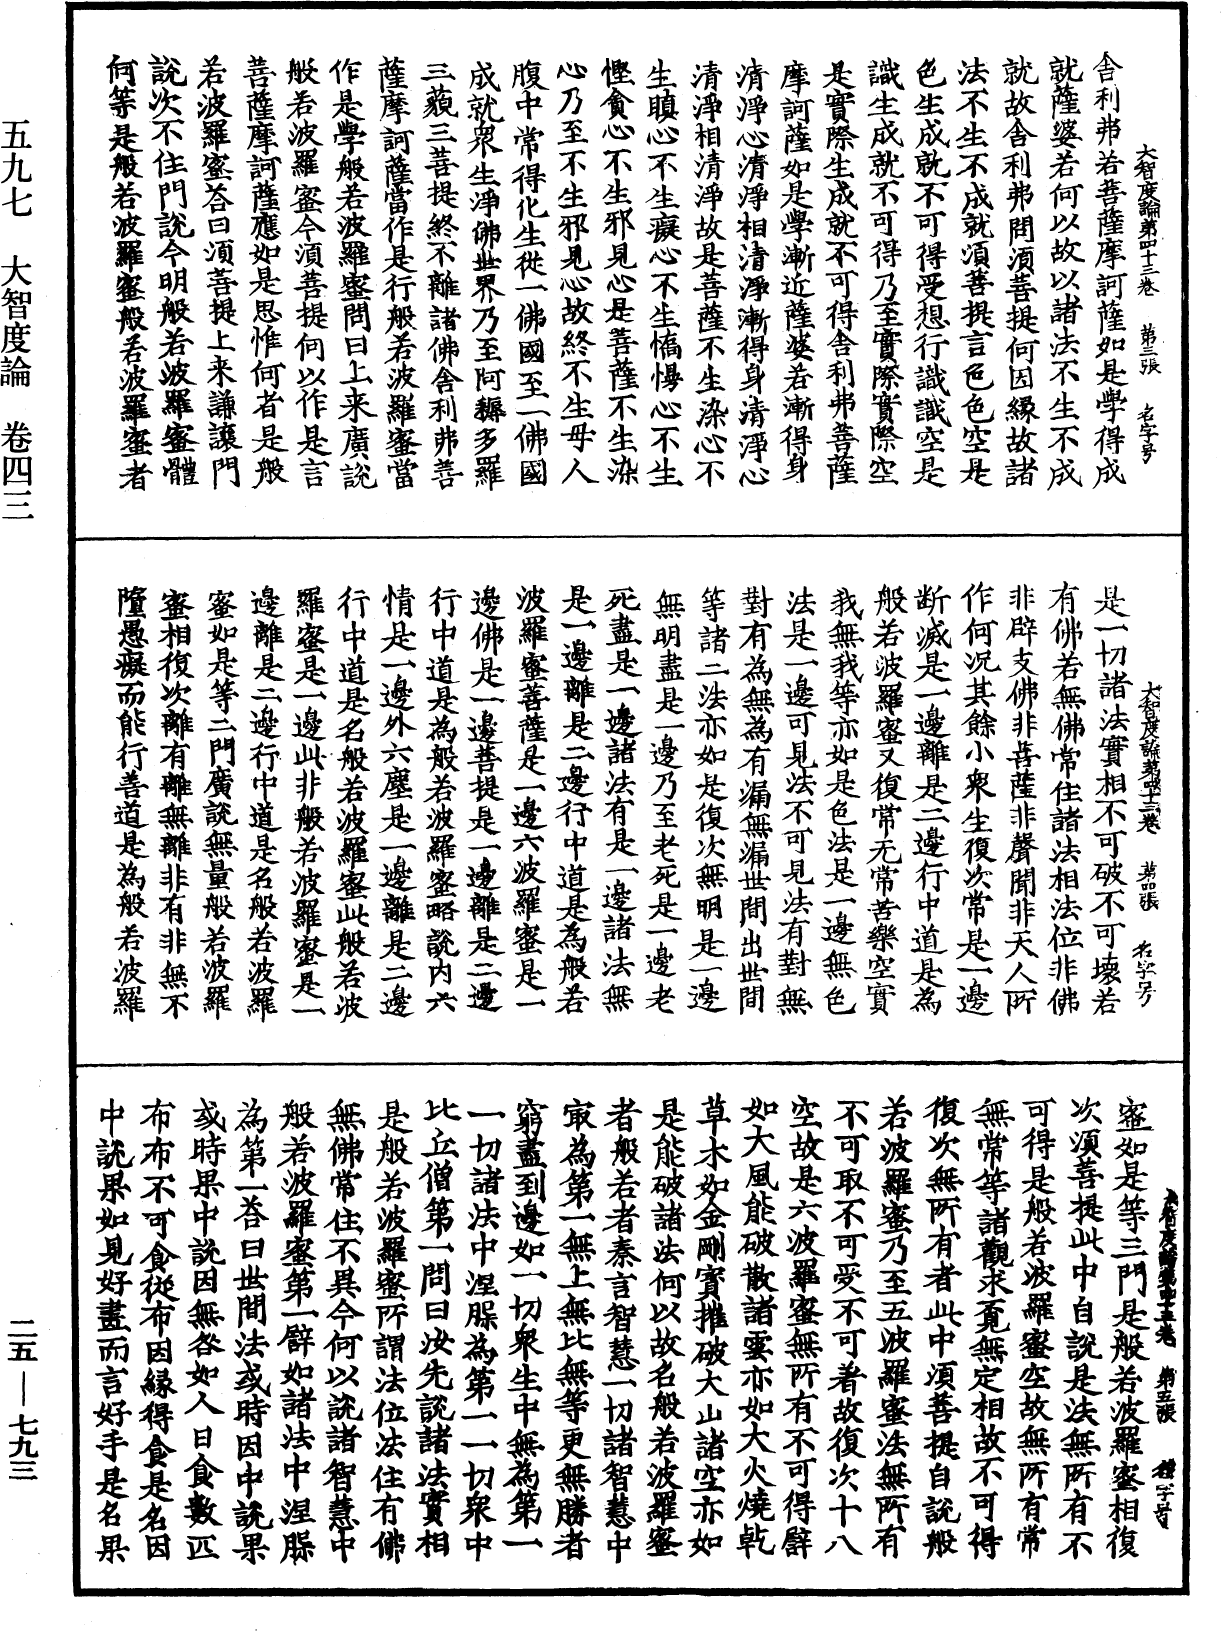 五九七　大智度論　卷四三
二五—七九三
大智度論第四十三卷　第三張　名字号
舍利弗若菩薩摩訶薩如是學得成
就薩婆若何以故以諸法不生不成
就故舍利弗問須菩提何因緣故諸
法不生不成就須菩提言色色空是
色生成就不可得受想行識識空是
識生成就不可得乃至實際實際空
是實際生成就不可得舍利弗菩薩
摩訶薩如是學漸近薩婆若漸得身
清淨心清淨相清淨漸得身清淨心
清淨相清淨故是菩薩不生染心不
生瞋心不生癡心不生憍慢心不生
慳貪心不生邪見心是菩薩不生染
心乃至不生邪見心故終不生母人
腹中常得化生從一佛國至一佛國
成就衆生淨佛世界乃至阿耨多羅
三藐三菩提終不離諸佛舍利弗菩
薩摩訶薩當作是行般若波羅蜜當
作是學般若波羅蜜問曰上来廣說
般若波羅蜜今須菩提何以作是言
菩薩摩訶薩應如是思惟何者是般
若波羅蜜荅曰須菩提上来謙讓門
說次不住門說今明般若波羅蜜體
何等是般若波羅蜜般若波羅蜜者
大智度論第四十三卷　第四張　名字号
是一切諸法實相不可破不可壞若
有佛若無佛常住諸法相法位非佛
非辟支佛非菩薩非聲聞非天人所
作何況其餘小衆生復次常是一邊
断滅是一邊離是二邊行中道是為
般若波羅蜜又復常无常苦樂空實
我無我等亦如是色法是一邊無色
法是一邊可見法不可見法有對無
對有為無為有漏無漏世間出世間
等諸二法亦如是復次無明是一邊
無明盡是一邊乃至老死是一邊老
死盡是一邊諸法有是一邊諸法無
是一邊離是二邊行中道是為般若
波羅蜜菩薩是一邊六波羅蜜是一
邊佛是一邊菩提是一邊離是二邊
行中道是為般若波羅蜜略說内六
情是一邊外六塵是一邊離是二邊
行中道是名般若波羅蜜此般若波
羅蜜是一邊此非般若波羅蜜是一
邊離是二邊行中道是名般若波羅
蜜如是等二門廣說無量般若波羅
蜜相復次離有離無離非有非無不
墮愚癡而能行善道是為般若波羅
大智度論第四十三卷　第五張　名字号
蜜如是等三門是般若波羅蜜相復
次須菩提此中自說是法無所有不
可得是般若波羅蜜空故無所有常
無常等諸觀求覓無定相故不可得
復次無所有者此中須菩提自說般
若波羅蜜乃至五波羅蜜法無所有
不可取不可受不可著故復次十八
空故是六波羅蜜無所有不可得譬
如大風能破散諸雲亦如大火燒乾
草木如金剛寳摧破大山諸空亦如
是能破諸法何以故名般若波羅蜜
者般若者秦言智慧一切諸智慧中
㝡為第一無上無比無等更無勝者
窮盡到邊如一切衆生中無為第一
一切諸法中涅槃為第一一切衆中
比丘僧第一問曰汝先說諸法實相
是般若波羅蜜所謂法位法住有佛
無佛常住不異今何以說諸智慧中
般若波羅蜜第一譬如諸法中涅槃
為第一荅曰世間法或時因中說果
或時果中說因無咎如人日食數匹
布布不可食從布因緣得食是名因
中說果如見好畫而言好手是名果